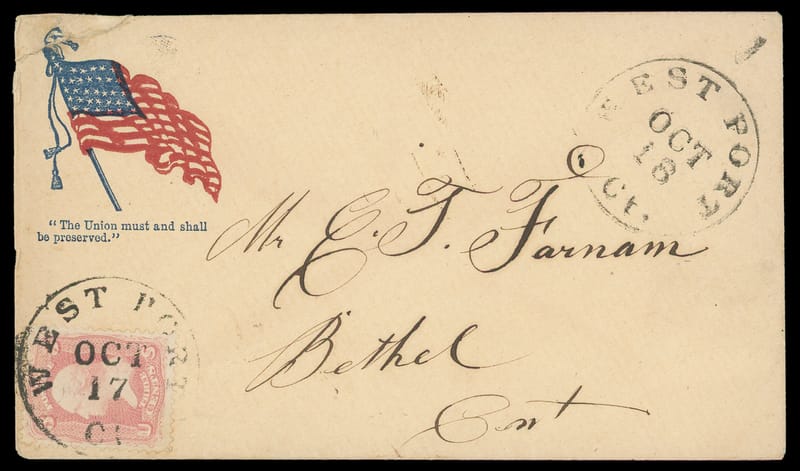 WEST PORT
OCT
18
Ct.
"The Union must and shall
be preserved."
Mr E. T. Farnam
Bethel
Cont
WEST PORT
OCT
17
Ct